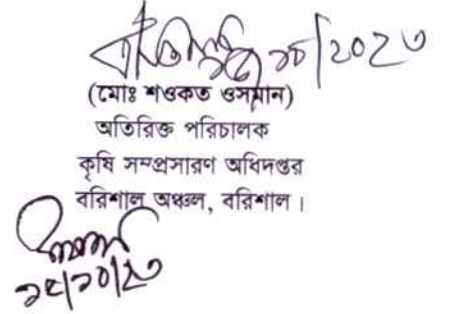 ১৮/২০২৩
(মোঃ শওকত ওসমান)
অতিরিক্ত পরিচালক
কৃষি সম্প্রসারণ অধিদপ্তর
বরিশাল অঞ্চল, বরিশাল।
১৫/১০/২৩